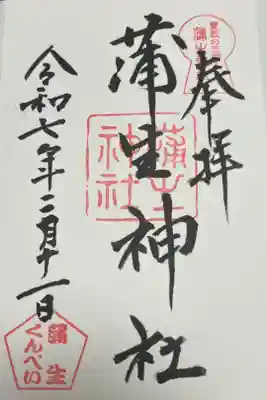 奉拝
蒲生神社
蒲生
神社
令和七年二月十一日
蒲生
くんぺい